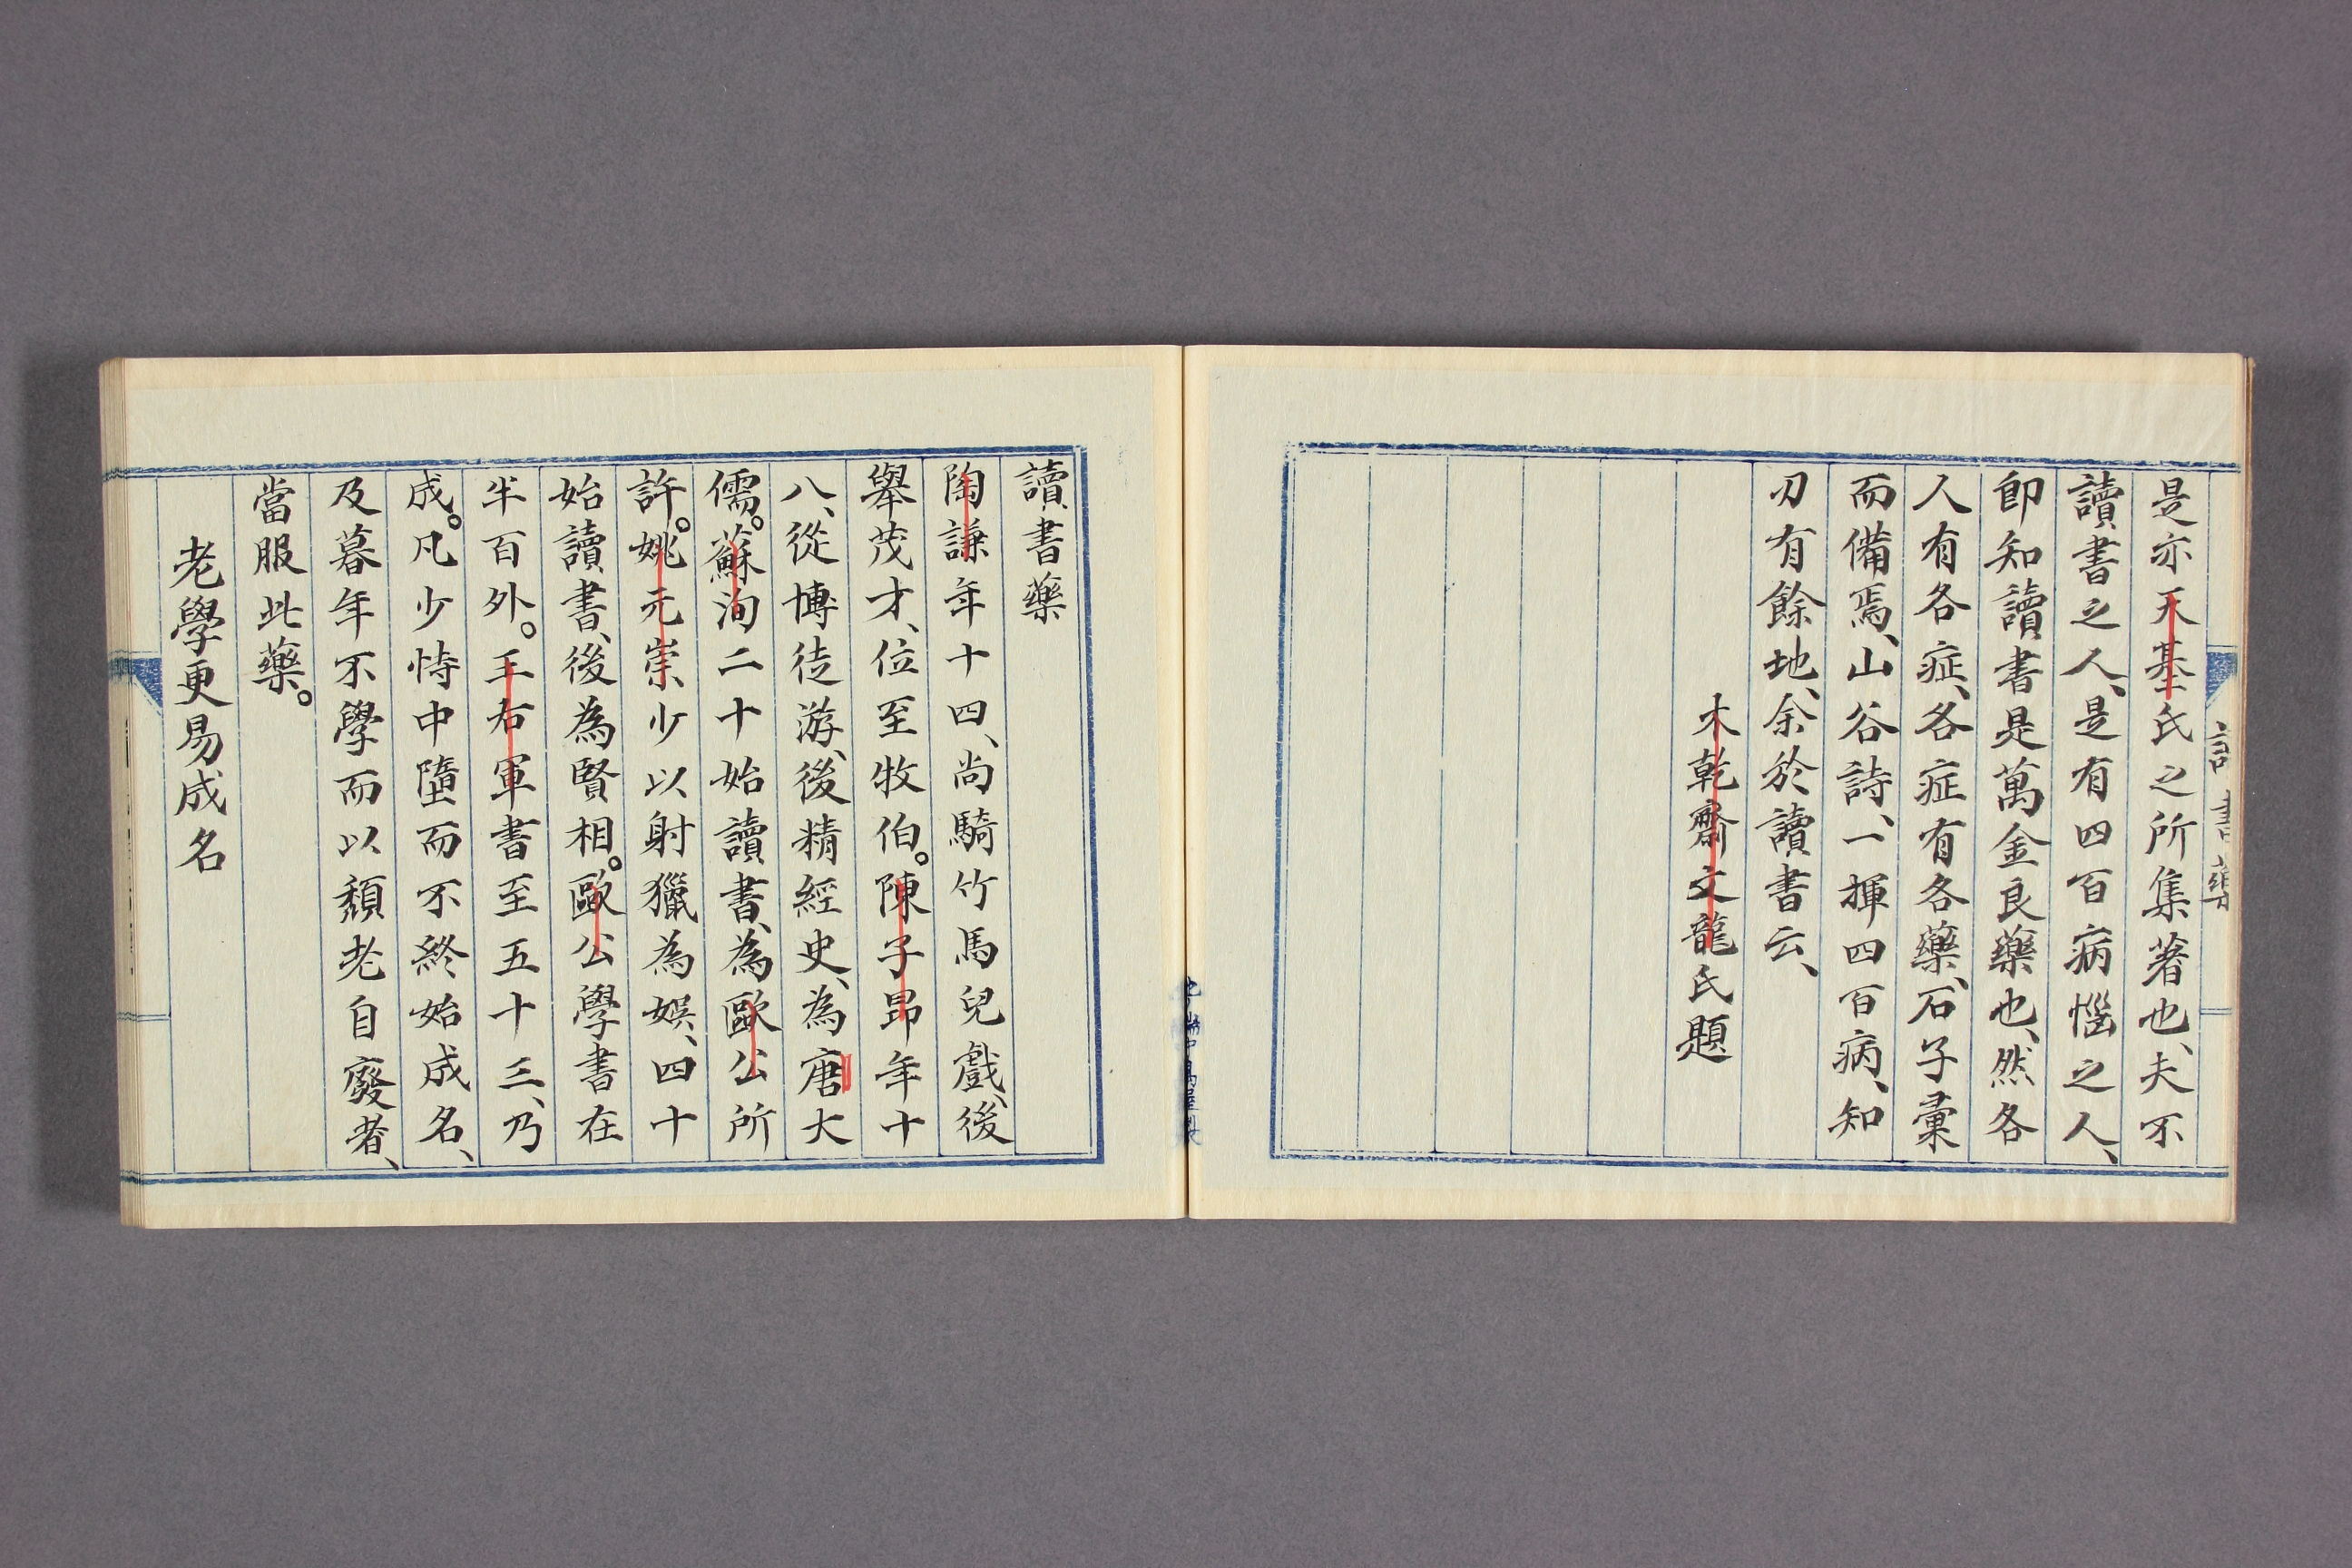 讀書藥
是亦天基氏之所集著也、夫不
讀書之人、是有四百病惱之人、
卽知讀書是萬金良藥也、然各
人有各症、各症有各藥、石子彙
而備焉、山谷詩、一揮四百病、知
刃有餘地、余於讀書云、
木乾齋文龍氏題
讀書藥
陶謙年十四、尚騎竹馬兒戲、後
舉茂才、位至牧伯。陳子昂年十
八、從博徒游、後精經史、為唐大
儒。蘇洵二十始讀書、為歐公所
許。姚元崇少以射獵為娛、四十
始讀書、後為賢相。歐公學書在
半百外。王右軍書至五十三、乃
成。凡少恃中墮而不終始成名、
及暮年不學而以頽老自廢者、
當服此藥。
老學更易成名